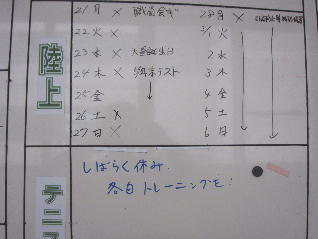 陸上
21 月 × 職員会議
22 火 ×
23 水 ×
24 木 × 学年末テスト
25 金
26 土 ×
27 日 ×
28 月 ×
3/1 火
2 水
3 木
4 金
5 土
6 日
テニス
しばらく休み.
各自トレーニングを!